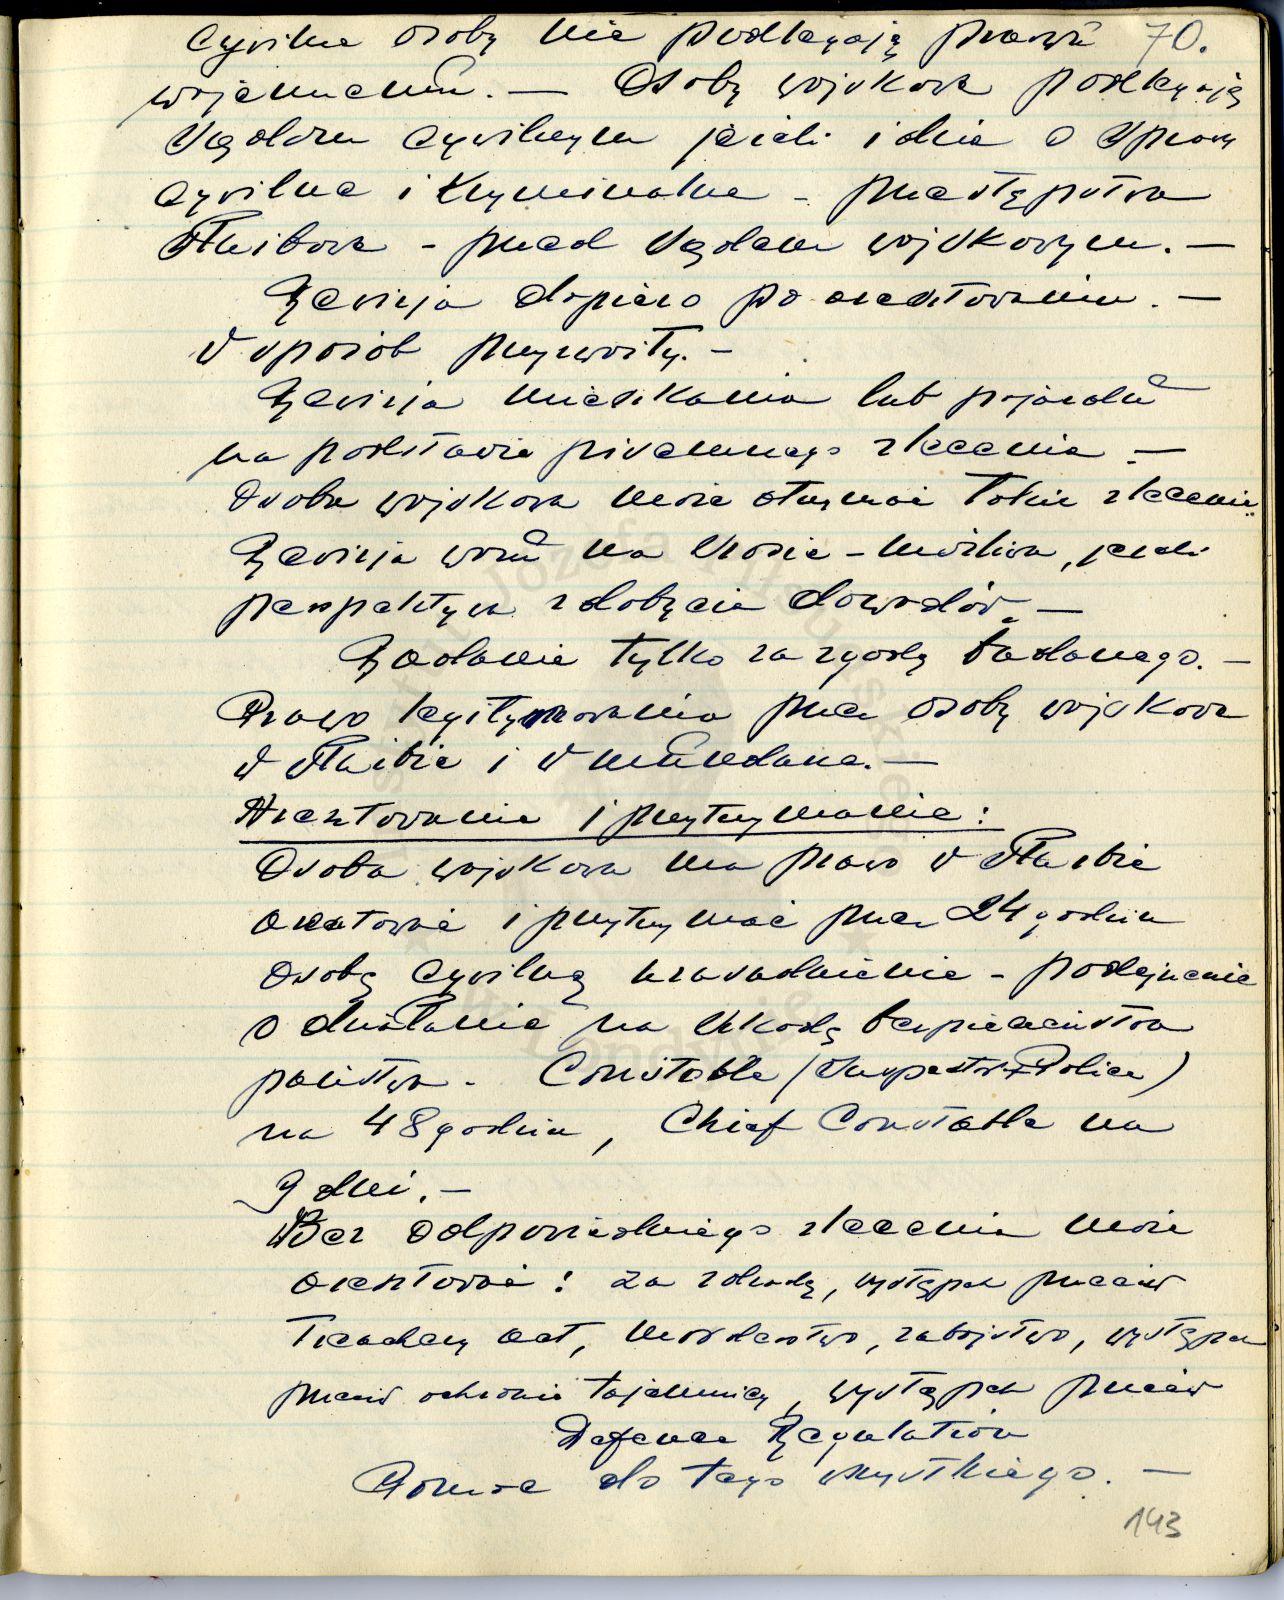 cywilne osoby nie podlegają prawu 70.
wojennemu. — Osoby wojskowe podlegają
sądom cywilnym jeżeli idzie o sprawy
cywilne i kryminalne - przestępstwa
służbowe - przed sądem wojskowym. —
Rewizja dopiero po aresztowaniu. —
W sposób przyzwoity. -
Rewizja mieszkania lub pojazdu
na podstawie pisemnego zlecenia —
Osoba wojskowa może otrzymać takie zlecenie.
Rewizja wozu na szosie - możliwa, jeżeli
perspektywa zdobycia dowodów. —
Badanie tylko za zgodą badanego. —
Prawo legitymowania przez osoby wojskowe
w służbie i w mundurze. —
Aresztowanie i przytrzymanie:
Osoba wojskowa ma prawo w służbie
aresztować i przytrzymać przez 24 godzin
osobę cywilną uzasadnienie - podejrzenie
o działanie na szkodę bezpieczeństwa
państwa. Constable (Inspector Police)
na 48 godzin, Chief Constable na
9 dni. —
Bez odpowiedniego zlecenia może
aresztować: za zdradę, występek przeciw
Treachery act, morderstwo, zabójstwo, występek
przeciw ochronie tajemnicy, występek przeciw
Defence Regulation
Pomoc do tego wszystkiego. —
143
Józefa Piłsudskiego
w Londynie